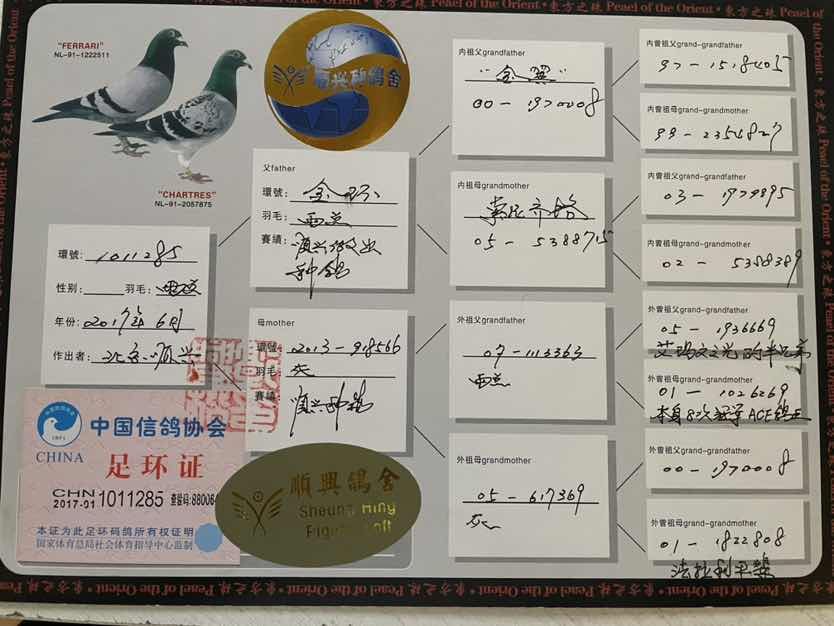 东方之珠 Peael of the Orient
"FERRARI"
NL-91-1222511
"CHARTRES"
NL-91-2057875
順興种鸽舍
環號: 1011285
性别: 羽毛: 雨点
年份: 2017年6月
作出者: 北京顺兴
父father
環號:
羽毛: 雨点
賽績: 顺兴
种鸽
母mother
環號: 2013-918566
羽毛: 灰
賽績: 顺兴种鸽
内祖父grandfather
"金翼"
00-1970008
内祖母grandmother
05-5388715
外祖父grandfather
07-1113363
雨点
外祖母grandmother
05-617369
灰
内曾祖父grand-grandfather
97-1518405
内曾祖母grand-grandmother
99-2354827
内曾祖父grand-grandfather
03-1979895
内曾祖母grand-grandmother
02-5388389
外曾祖父grand-grandfather
05-1936669
艾玛文之光的半兄弟
外曾祖母grand-grandmother
01-1026269
本身8次冠军ACE鸽王
外曾祖父grand-grandfather
00-1970008
外曾祖母grand-grandmother
01-1822808
法拉利平辈
中国信鸽协会
CHINA
足环证
CHN
2017-01
1011285
查验码:88006
本证为此足环码鸽所有权证明
国家体育总局社会体育指导中心监制
順興鸽舍
Sheung Hing
Pigeon Loft
东方之珠 Peael of the Orient